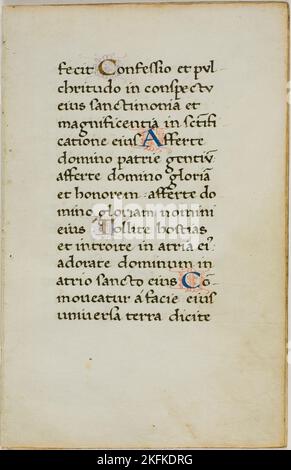 fecit Confessio et pul
chritudo in conspectu
eius sanctimonia et
magnificentia in sctifi
catione eius Afferte
domino patrie gentiū
afferte domino gloriā
et honorem · afferte do
mino gloriam nomini
eius Tollite hostias
et introite in atria ei᾽
adorate dominum in
atrio sancto eius Cō
moveatur á facie eius
universa terra dicite
alamy
alamy
Image ID: 2KFKDRG
www.alamy.com